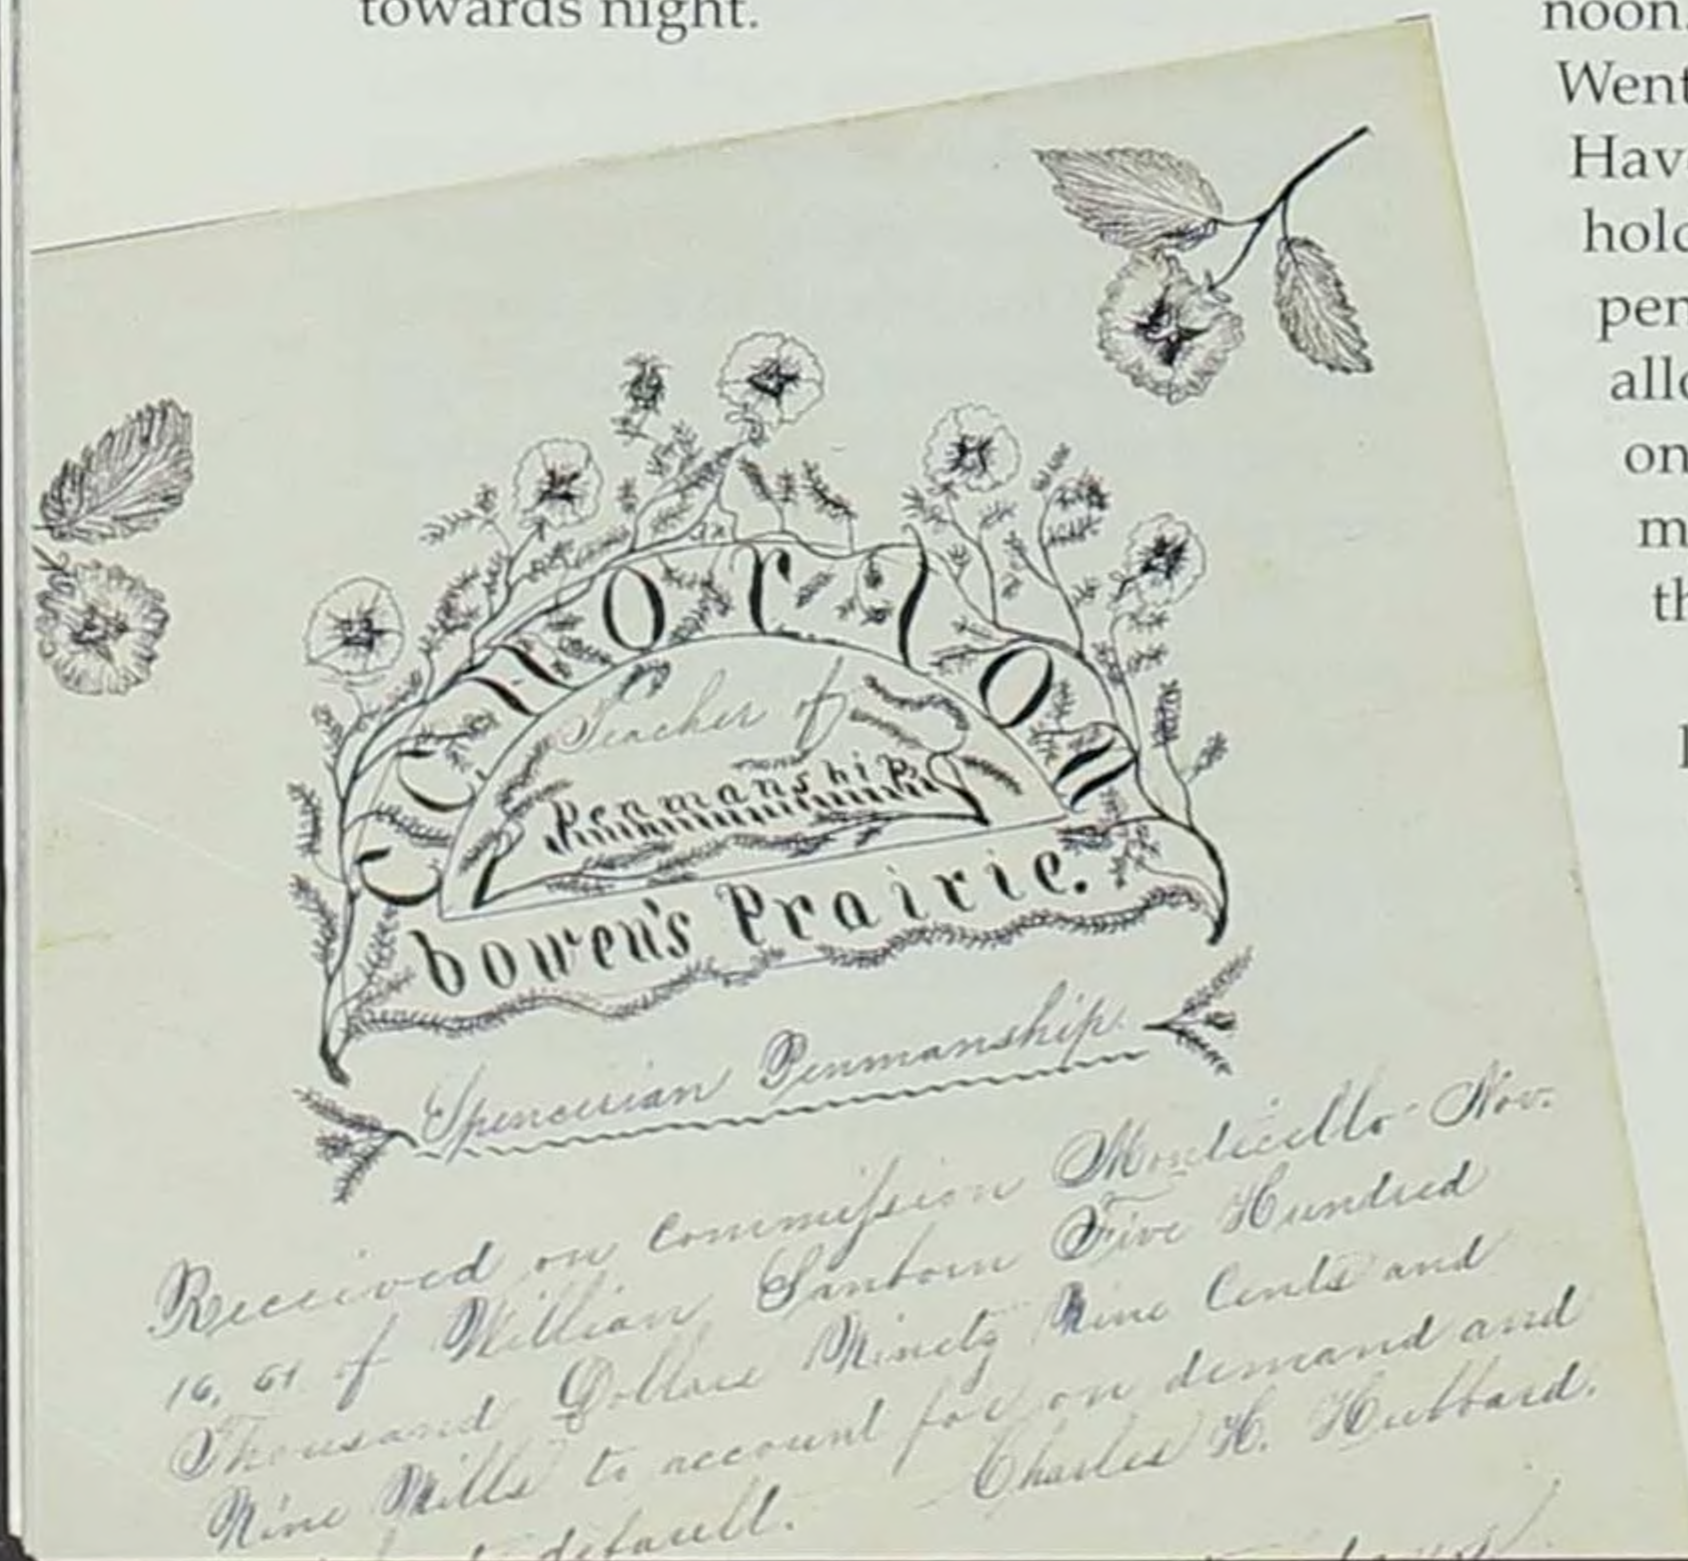 towards night.
noon.
Went
Hav
hold
per
allo
on
m
th
C. C. HORTON
Teacher of
Penmanship
bowen's Prairie.
Spencerian Penmanship.
Received on commission Monticello Nov.
16, 61 of William Sanborn Five Hundred
Thousand Dollars Ninety Nine Cents and
Nine Mills to account for on demand and
default.
Charles H. Hubbard.